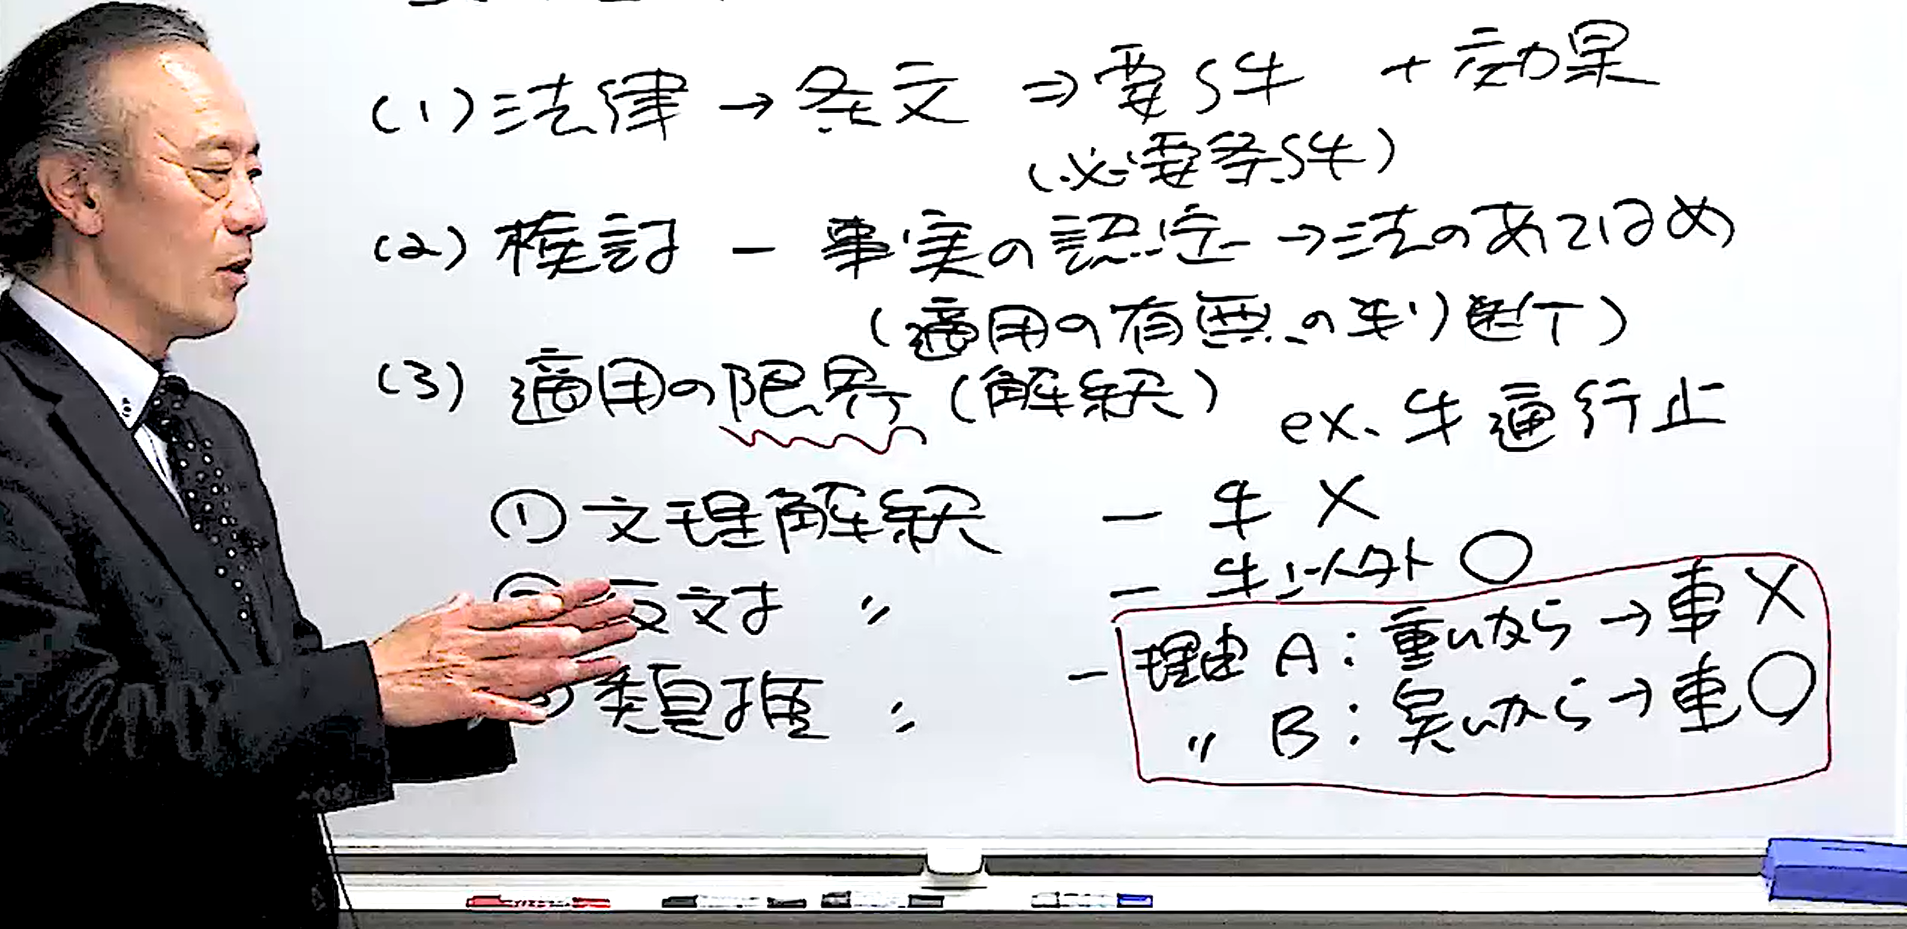 (1) 法律 → 条文 ⇒ 要件 + 効果
(必要条件)
(2) 検証 ー 事実の認定 → 法のあてはめ
(適用の有無の判断)
(3) 適用の限界 (解釈) ex. 牛通行止
① 文理解釈 ー 牛 ×
反対 〃 ー 牛以外 ○
類推 〃 ー 理由 A : 重いから → 車 ×
〃 B : 臭いから → 車 ○